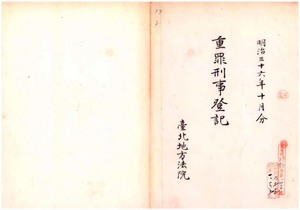 明治三十六年十月分
重罪刑事登記
臺北地方法院